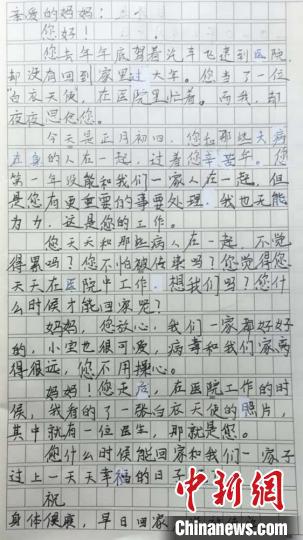 亲爱的妈妈：
您好！
您去年年底驾着汽车飞速到医院，
却没有回到家里过大年。您当了一位
“白衣天使”，在医院里忙着。而我，却
夜夜思您您。
今天是正月初四，您和那些大病
在身的人在一起，过着您辛苦年。您
第一年没能和我们一家人在一起，但
是您有更重要的事要处理，我也无能
为力，这是您的工作。
您天天和那些病人在一起，不觉
得累吗？您不怕被传染吗？您觉得您
天天在医院中工作，想我们吗？您什
么时候才能回家呢？
妈妈，您放心，我们一家都好好
的，小宝也很可爱，病毒和我们家离
得很远，您不用操心。
妈妈！您走后，在医院工作的时
候，我看的了一张白衣天使的照片，
其中就有一位医生，那就是您。
您什么时候能回家和我们一家子
过上一天天幸福的日子
祝
身体健康，早日回家
中新网